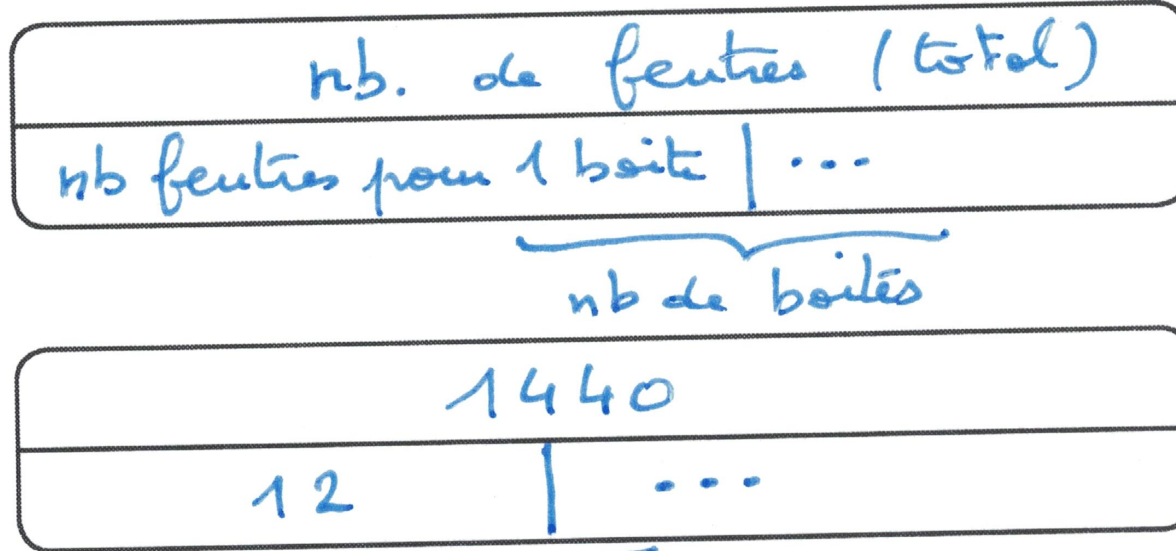 nb. de feutres (total)
nb feutres pour 1 boite | ...
nb de boites
1440
12 | ...